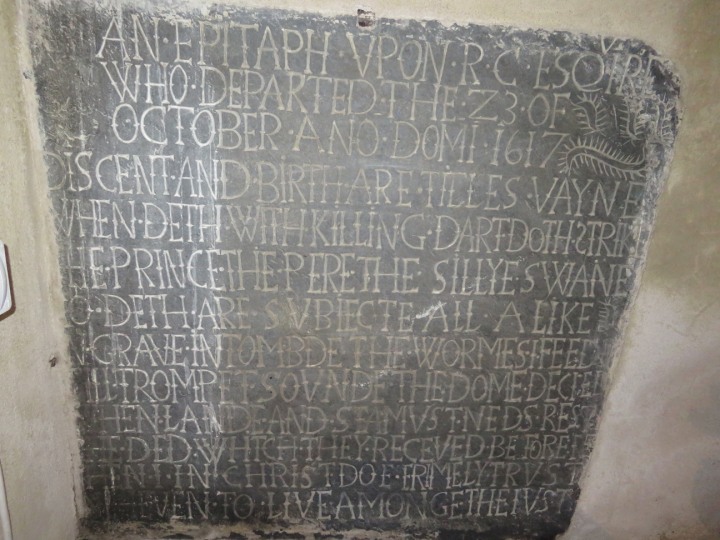 AN · EPITAPH VPON · R C · ESQIRE
WHO · DEPARTED · THE · 23 · OF
OCTOBER · ANO · DOMI · 1617
DISCENT · AND · BIRTH ARE · TILLES · VAYNE
WHEN · DETH · WITH KILLING · DART DOTH STRIK
THE · PRINCE · THE PERE THE SILLYE · SWANE
DETH ARE SVBIECTE ALL A LIKE
GRAVE INTOMBDE THE WORMES FEED
TROMPET SOVNDE THE DOME DECEE
THEN LANDE AND S MVST NEDS RES
DED WHICH THEY RECEVED BEFORE
IN CHRIST DOE FRIMELY TRVST
HEVEN TO LIVE AMONGE THE IVST